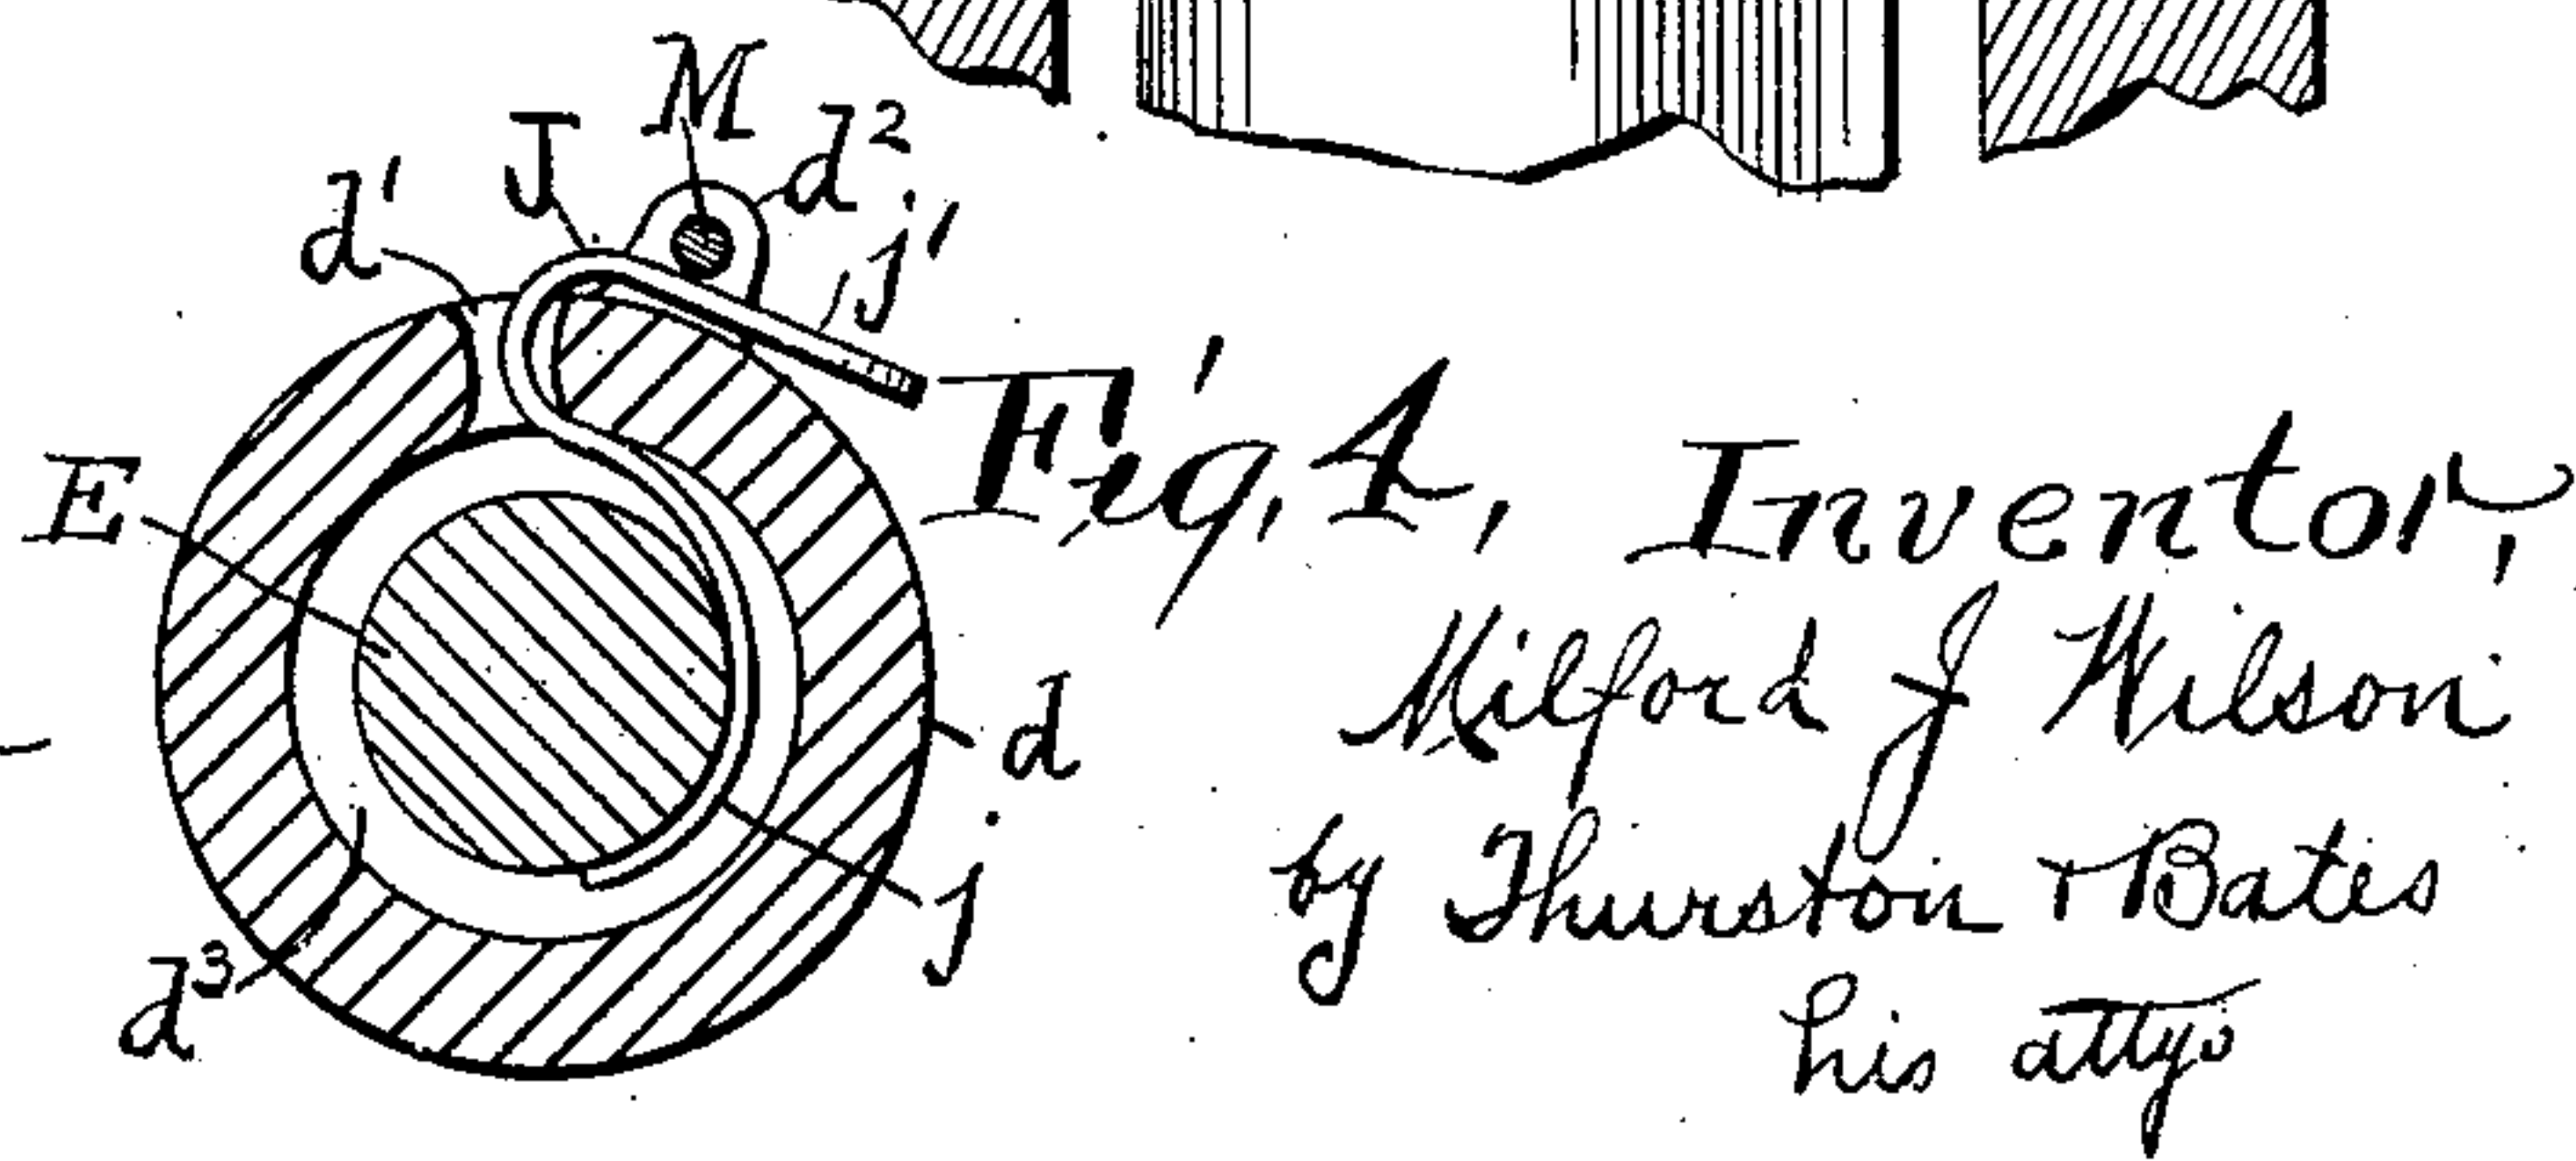 M
J
d²
d'
j'
E
Fig. 4,
Inventor,
Milford J Wilson
d
by Thurston & Bates
j
d³
his attys